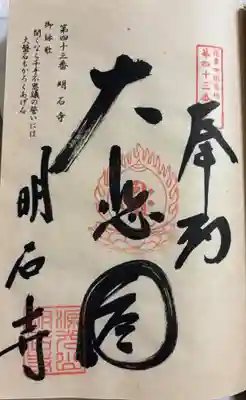 第四十三番
奉納
大悲閣
明石寺
源光山
第四十三番 明石寺
御詠歌
聞くならく千手不思議の誓いには
大盤石もかろくあげ石